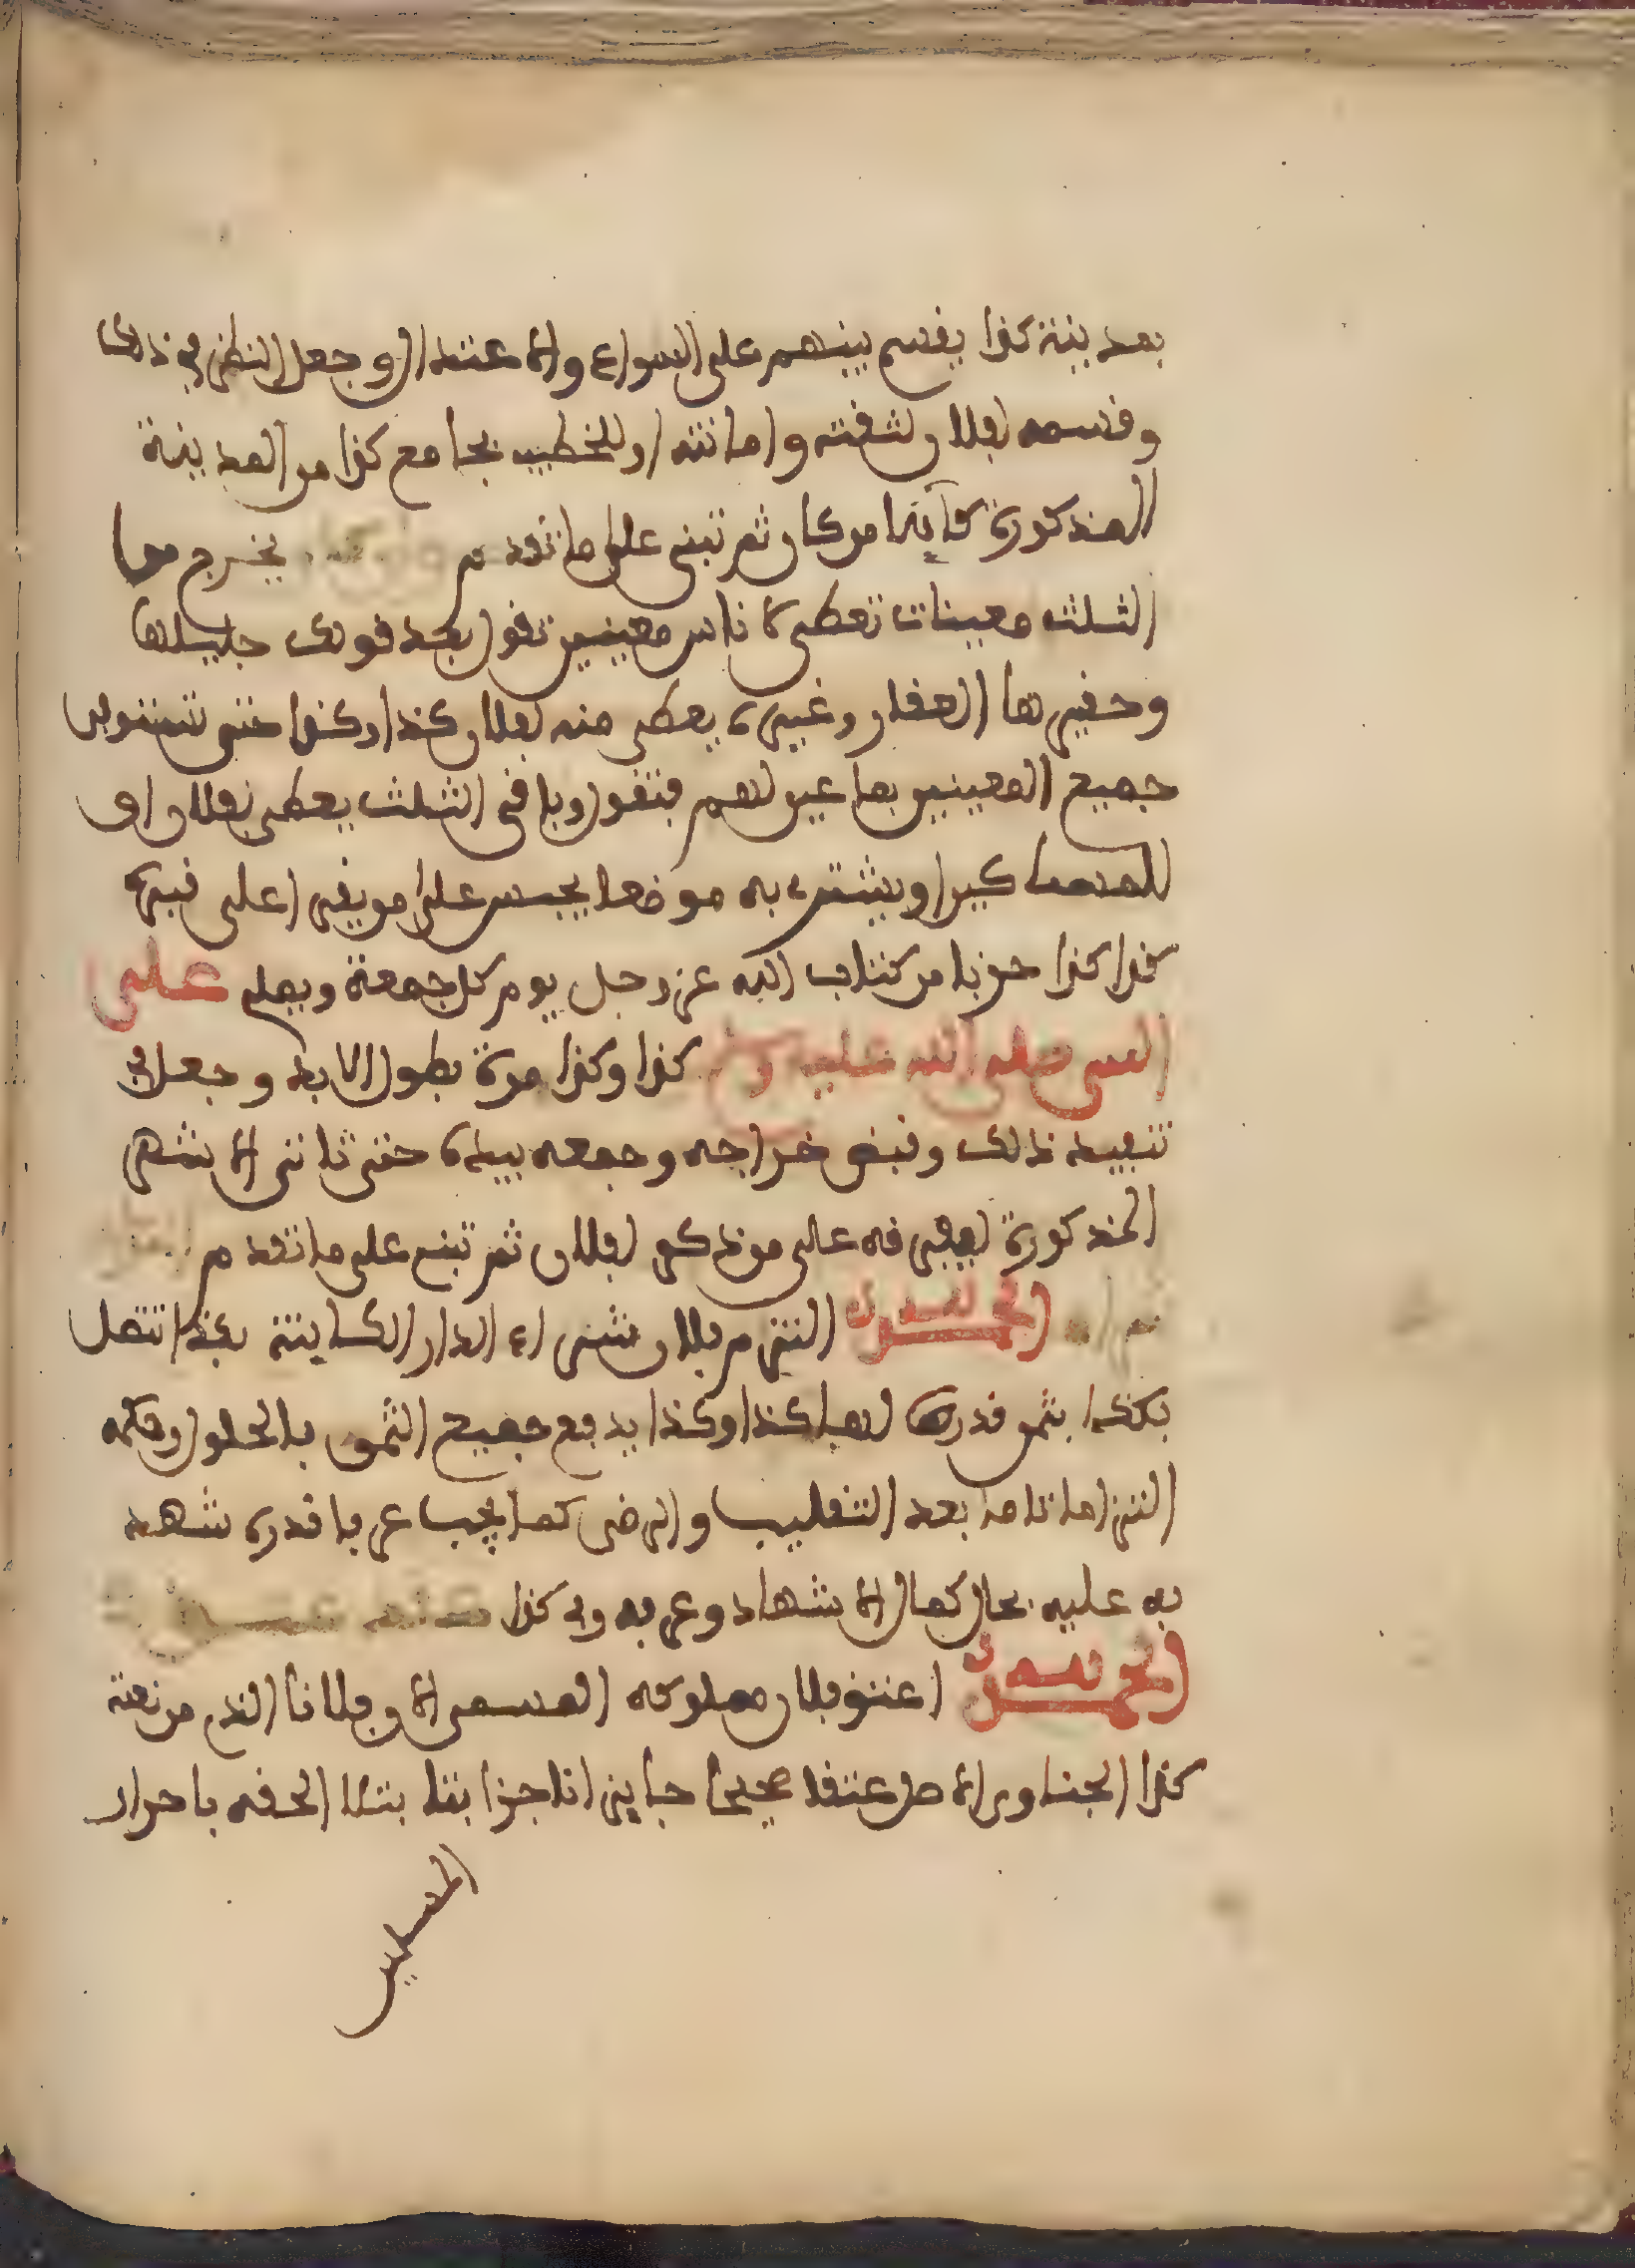 بمدينة كذا يقسم بينهم على السواء والاعتدال وجعل النظر في ذلك
وقسمه لفلان لثقته وامانته او للخطيب بجامع كذا من المدينة
المذكورة كاينا من كان ثم تبنى على ما تقدم يخرج منها
الثلث معينات تعطى لاناس معينين تقول بعد قولك جليلها
وحقيرها العقار وغيره يعطى منه لفلان كذا وكذا حتى تستوفى
جميع المعينين بما عين لهم فتقول وباقي الثلث يعطى لفلان او
للمساكين او يشترى به موضعا يحبس على من يقرا على قبره
كذا كذا حزبا من كتاب الله عز وجل يوم كل جمعة ويصلى على
النبي صلى الله عليه وسلم كذا وكذا مرة بطول الابد وجعل في
تنفيذ ذلك وقبض خراجه وجمعه بيده حتى تاتي الاشهر
المذكورة ليفرقه على من ذكر لفلان ثم تبنى على ما تقدم
الحمد لله التزم فلان شراء الدار الكاينة بكذا تتصل
بكذا بثمن قدره لها كذا وكذا يدفع جميع الثمن بالحلول وحكمه
التزاما تاما بعد التقليب والرضى كما يجب عرفا قدره شهد
به عليه بحال كمال الاشهاد وعرفه وفي كذا
الحمد لله اعتق فلان مملوكه المسمى الا وفلانا الذي من نعته
كذا الجناوى الاصل عتقا صحيحا جايزا ناجزا بتا بتلا الحقه باحرار
المسلمين